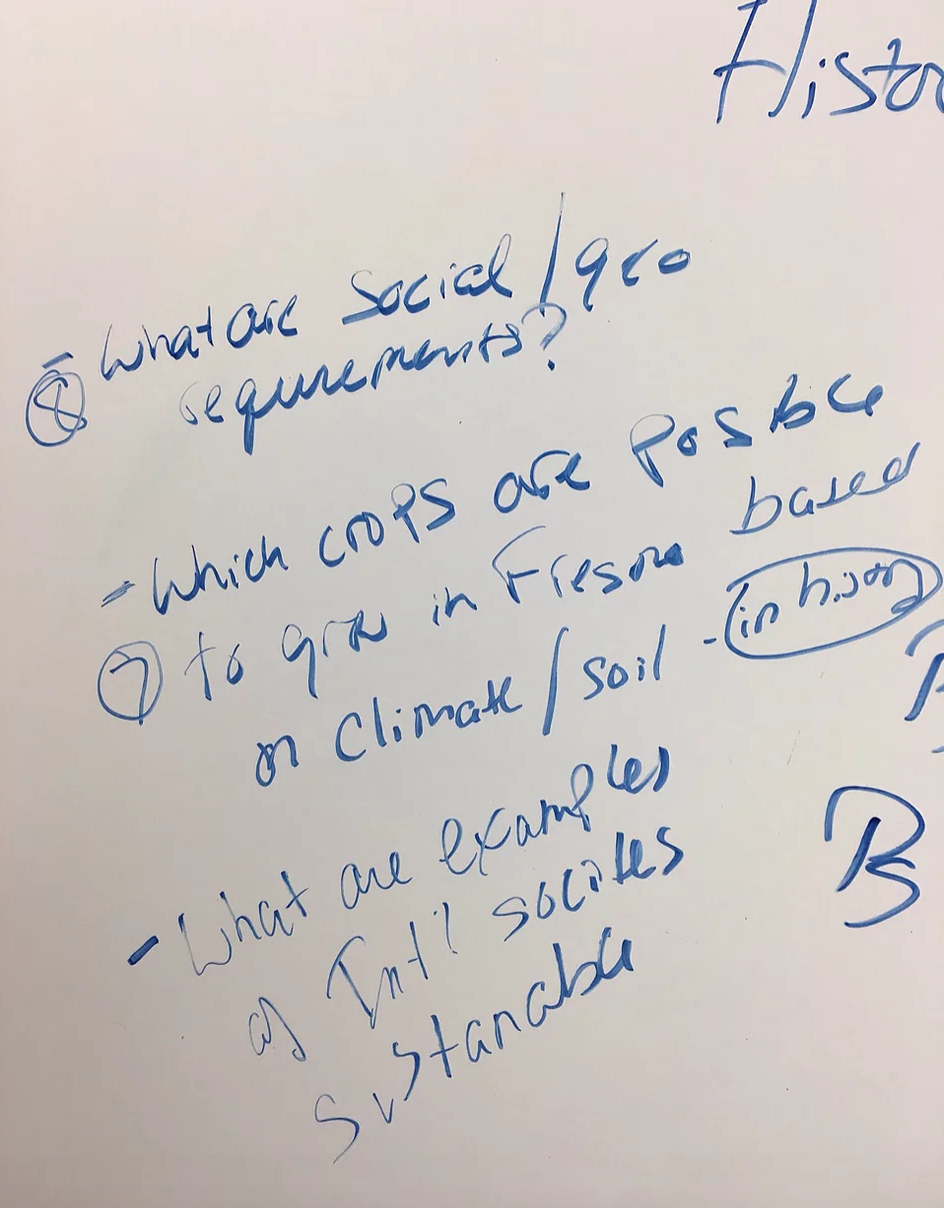 Histo
- What are social/geo
⑧ requrements?
- Which crops are posible
⑦ to grow in Fresno based
on climate/soil - in history
- What are examples
of Int'l socites
sustanable
B